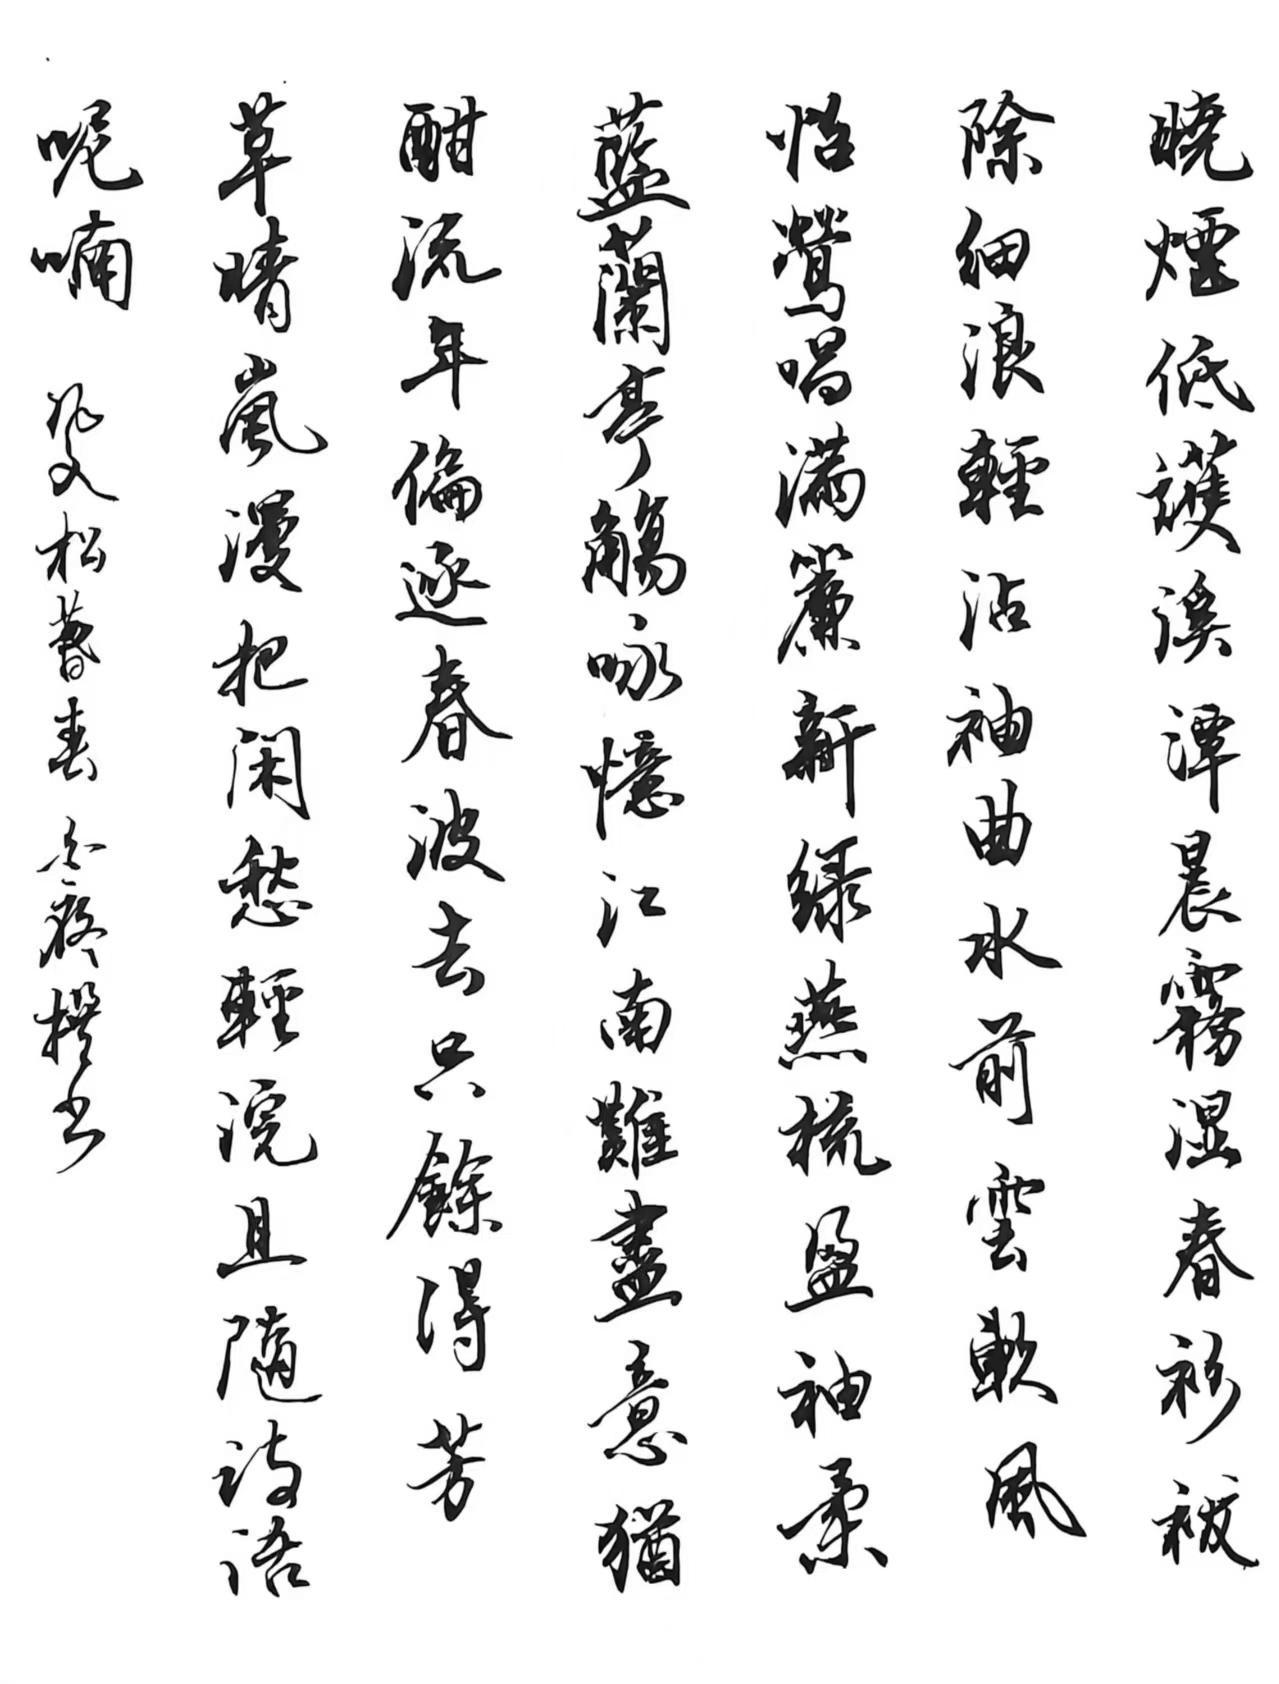 曉煙低護溪潭晨霧濕春衫祓
除細浪輕沾袖曲水前雲軟風
怡鶯唱滿簾新綠燕梳盈袖柔
藍蘭亭觴咏憶江南難盡意猶
酣流年偷逐春波去只餘得芳
草晴嵐漫把闲愁輕浣且隨詩語
呢喃 松暮春 撰书